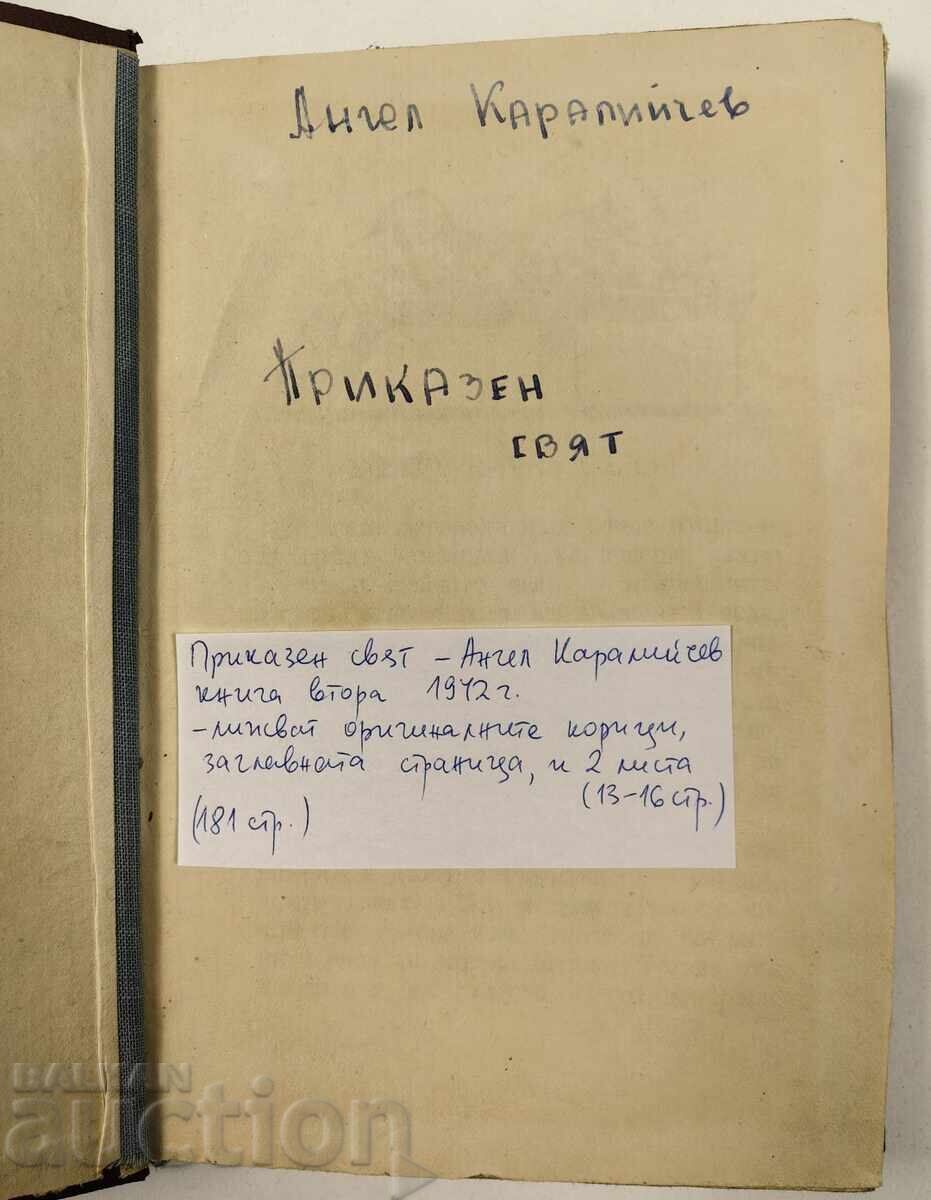 Ангел Каралийчев
Приказен
свят
Приказен свят – Ангел Каралийчев
книга втора 1942 г.
- липсват оригиналните корици,
заглавната страница, и 2 листа
(13-16 стр.)
(181 стр.)
BALKAN
auction